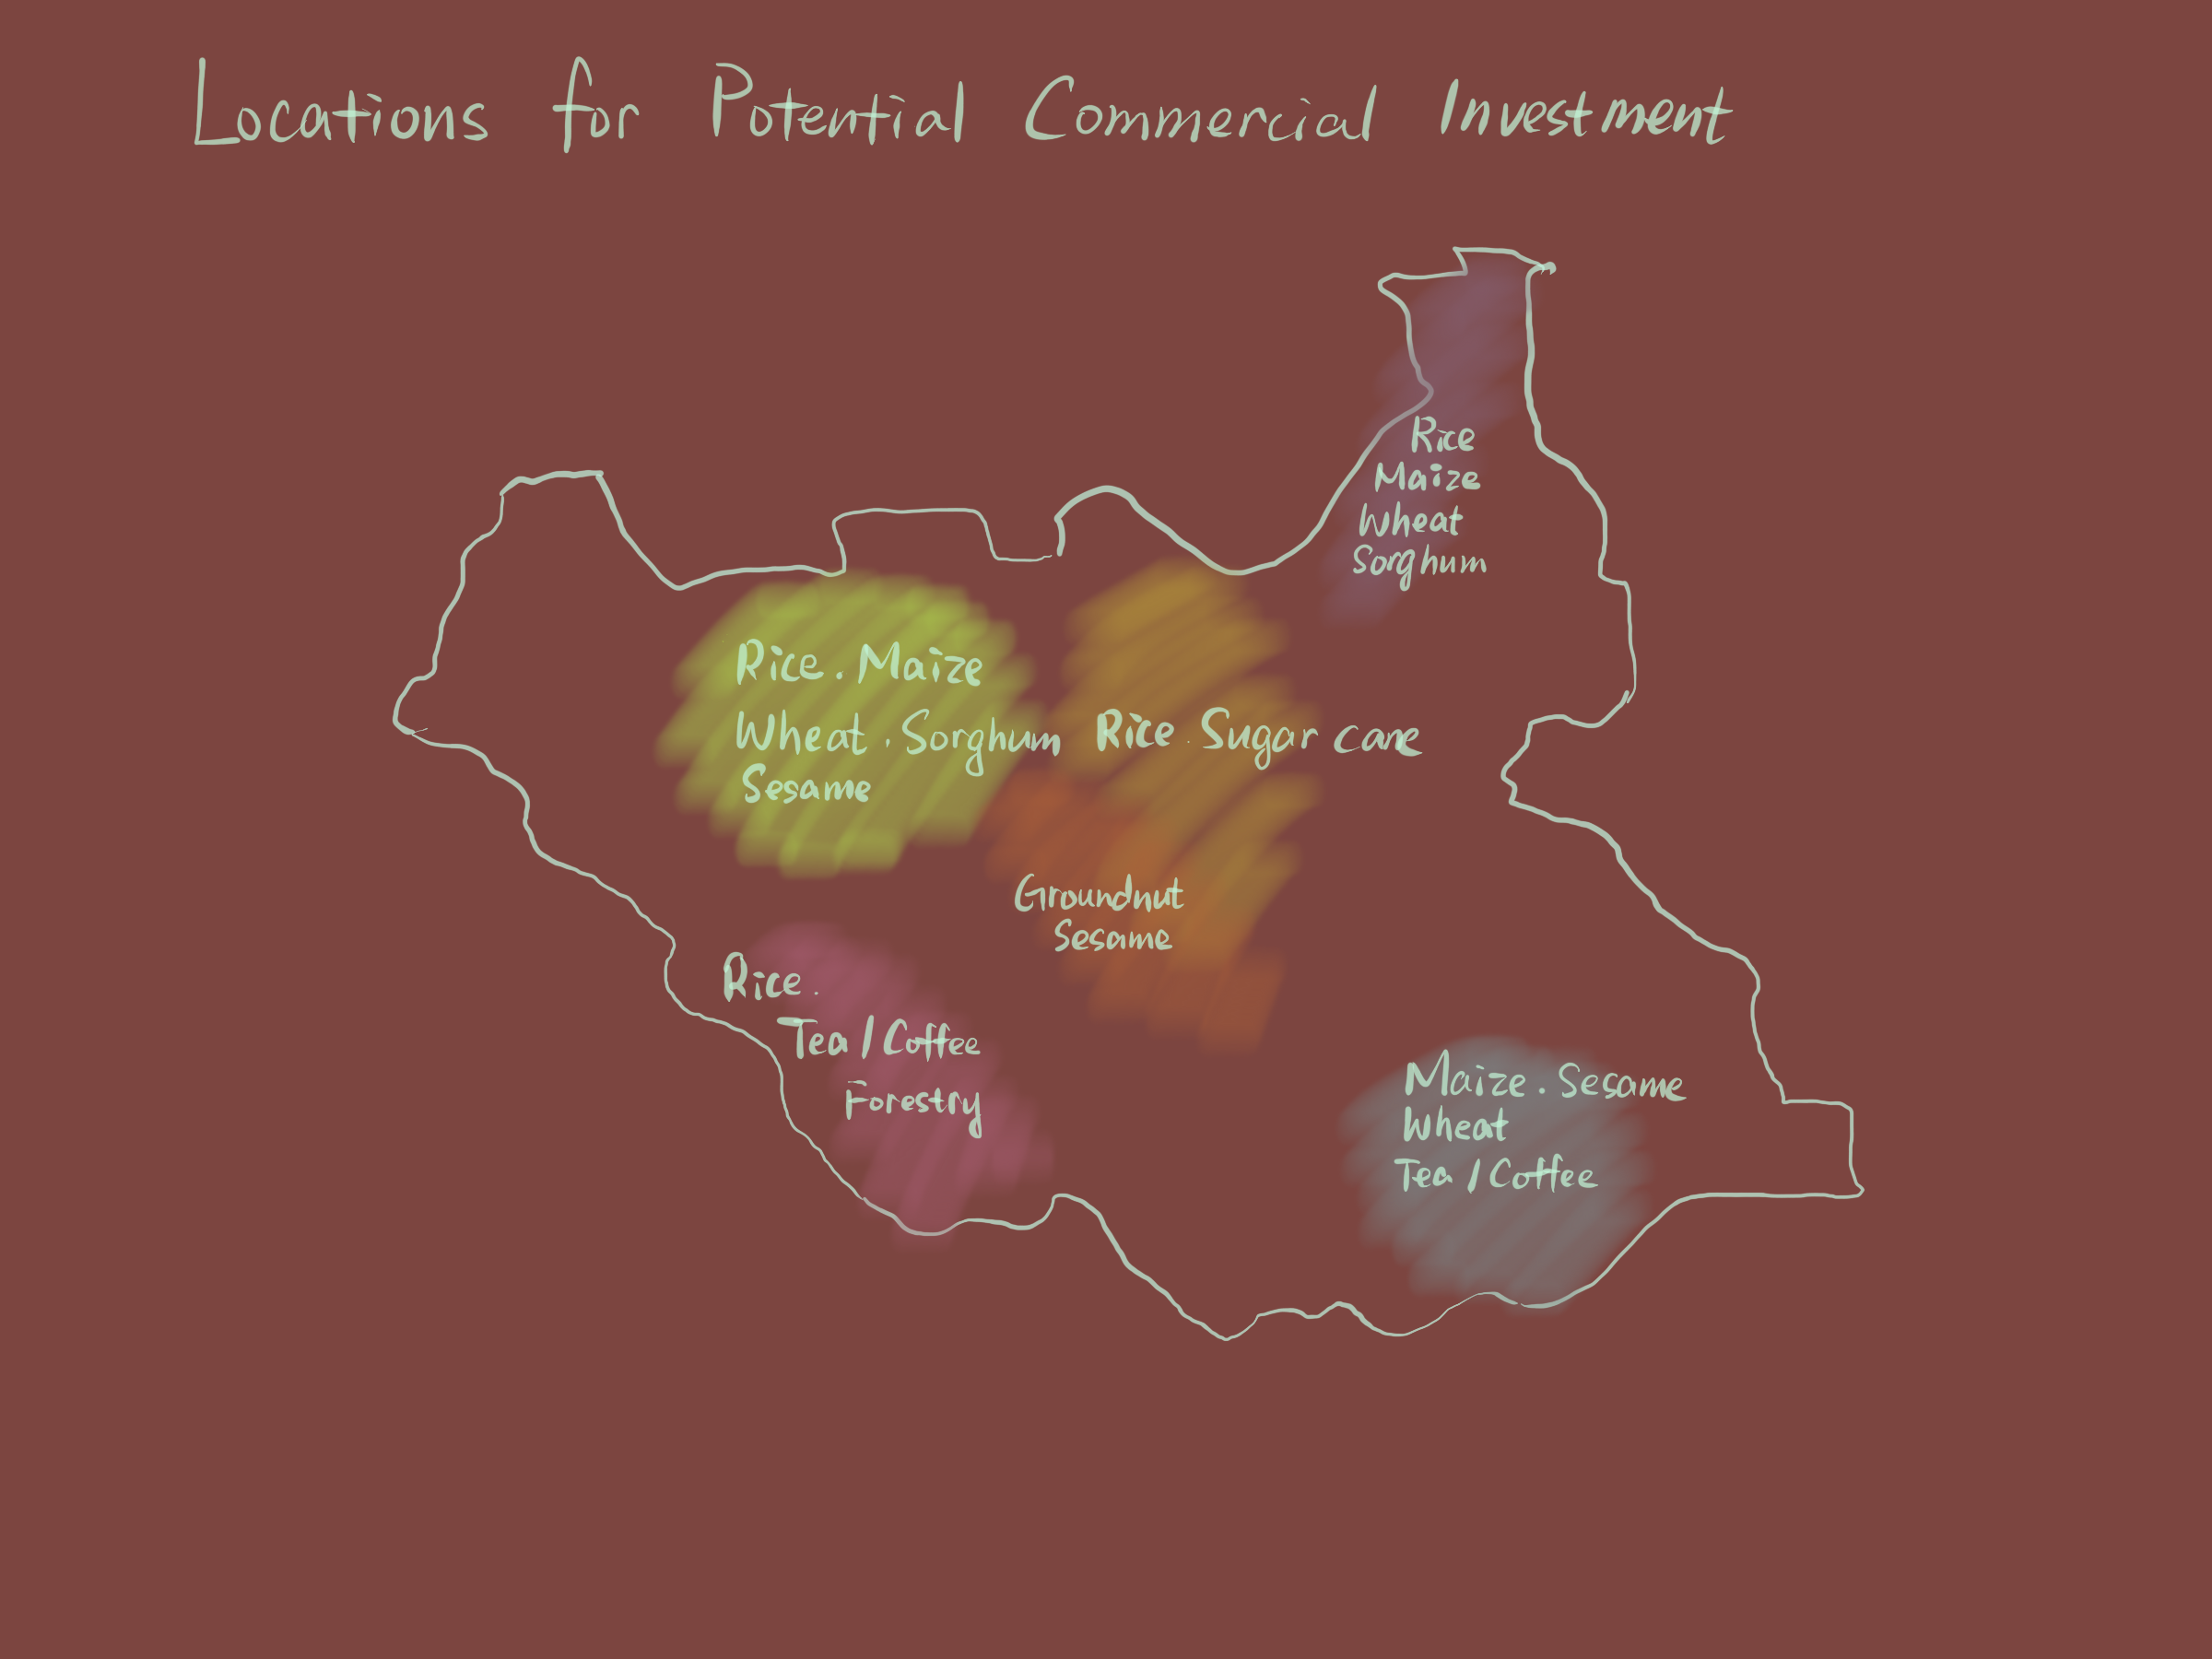 Locations for Potential Commercial Investment
Rice
Maize
Wheat
Sorghum
Rice. Maize
Wheat. Sorghum
Sesame
Rice. Sugar cane
Groundnut
Sesame
Rice.
Tea / Coffee
Forestry
Maize. Sesame
Wheat
Tea / Coffee